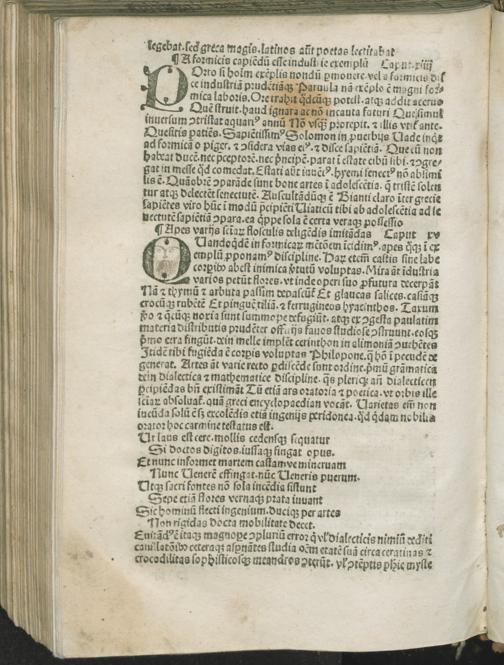 legebat. sed greca magis. latinos aūt poetas lectitabat
¶ A formicis capiēdū eſſe induſtrie exemplū Caput xiiij
POrto ſi hoīm exēplis nondū ꝓmonere vel a formicis diſ
ce induſtriā prudētiāqꝫ Paruula nā exēplo ē magni for⸗
mica laboris. Ore trahit qdcūqꝫ poteſt. atqꝫ addit aceruo
Quē ſtruit. haud ignara ac nō incauta futuri Que ſimul
inuerſum ↄtriſtat aquariꝰ annū Nō vſqꝫ prorepit. ⁊ illis vtiť ante.
Queſitis patiēs. Sapiētiſſimꝰ Solomon in ꝓuerbijs Vade inqt
ad formicā o piger. ⁊ ↄſidera vias eiꝰ. ⁊ diſce ſapiētiā. Que cū non
habeat ducē. nec ꝓceptorē. nec pncipē. parat ī eſtate cibū ſibi. ⁊ ↄgre⸗
gat in meſſe qd comedat. Eſtati aūt iuuētꝰ. hyemi ſenectꝰ nō abſimi
lis ē. Quāobrē ↄparāde ſunt bone artes ī adoleſcētia. q̄ triſtē ſolen
tur atqꝫ delectēt ſenectutē. Auſcultādūqꝫ ē Bianti claro iter grecie
ſapiētes viro hūc ī modū ꝓcipiēti Uiaticū tibi ab adoleſcētia ad ſe
nectutē ſapiētiā ↄpara. ea qͥppe ſola ē certa veraqꝫ poſſeſſio
¶ Apes varijs ſciaꝝ floſculis deligēdis imitādas Caput xv
QUandoqͥdē in formicaꝝ mētōem īcidimꝰ. apes qͦqꝫ ī ex
emplū ꝓponamꝰ diſcipline. Haꝝ etem caſtis ſine labe
corpibꝰ abeſt inimica ṽtutū voluptas. Mira āt īduſtria
varios petūt flores. vt inde operi ſuo ꝓfutura decerpāt
Nā ⁊ thymū ⁊ arbuta paſſim depaſcūt Et glaucas ſalices. caſiāqꝫ
crocūqꝫ rubētē Et pinguē tiliā. ⁊ ferrugineos hyacinthos. Taxum
ꝟo ⁊ qͥcūqꝫ noxia ſunt ſummope refugiūt. atqꝫ ex ↄgeſta paulatim
materia diſtributis prudēter officijs fauos ſtudioſe ↄſtruunt. eoſqꝫ
pͥmo cera fingūt. dein melle implēt cerinthon in alimoniā vehētes
Itidē tibi fugiēda ē corpis voluptas Philopone. q̄ hō ī pecudē de
generat. Artes āt varie recto ꝓdiſcēde ſunt ordine. pͥmū grāmatica
dein dialectica ⁊ mathematice diſcipline. qͣs pleriqꝫ añ dialecticen
ꝓcipiēdas bñ exiſtimāt Tū etiā ars oratoria ⁊ poetica. vt orbis ille
ſciaꝝ abſoluať. quā greci encyclopaedian vocāt. Uarietas em̄ non
incūda ſolū eſt, excolēdis etiā ingenijs ꝑidonea. qd qdam nobilis
orator hoc carmine teſtatus eſt.
Ut laus eſt cere. mollis cedenſqꝫ ſequatur
Si doctos digitos. iuſſaqꝫ fingat opus.
Et nunc informet martem caſtamve mineruam
Nunc Uenerē effingat. nūc Ueneris puerum.
Utqꝫ ſacri fontes nō ſola incēdia ſiſtunt
Sepe etiā flores vernaqꝫ prata iuuant
Sic hominū flecti ingenium. duciqꝫ per artes
Non rigidas docta mobilitate decet.
Euitādꝰ ē itaqꝫ magnope ↄpluriū error qͥ vl dialecticis nimiū dediti
cauillatōibꝰ ceteraqꝫ aſpnātes ſtudia oēm etatē ſuā circa ceratinas ⁊
crocodilitas ſophiſticoſqꝫ meandros ↄterūt. vl ↄtēptis phīe myſte